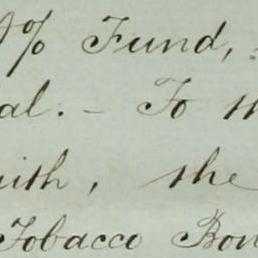 % Fund,
al. - To th
ith, the
Tobacco Bon